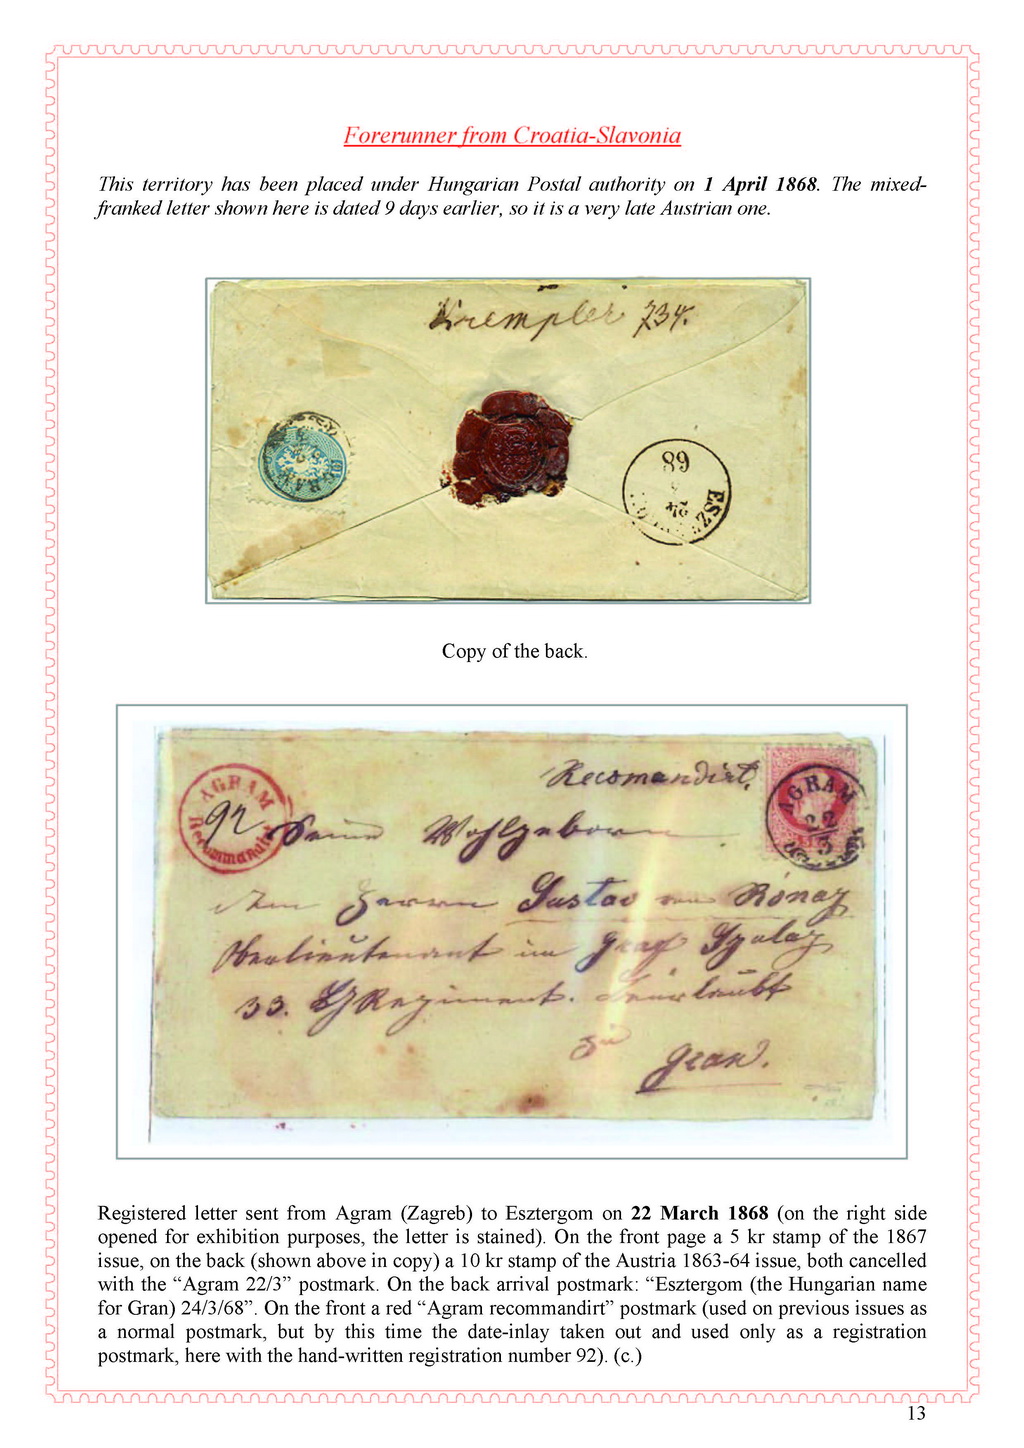 Forerunner from Croatia-Slavonia
This territory has been placed under Hungarian Postal authority on 1 April 1868. The mixed-
franked letter shown here is dated 9 days earlier, so it is a very late Austrian one.
Krempler 734.
68
24
ESZ
Copy of the back.
AGRAM
Recommandirt
92
Recomandirt.
AGRAM
22/3
Seine Wohlgeborn
An Herrn Gustav von Rónay
Oberlieutenant im Graf Gyulay
33. Regiment. beurlaubt
zu
Gran.
Registered letter sent from Agram (Zagreb) to Esztergom on 22 March 1868 (on the right side
opened for exhibition purposes, the letter is stained). On the front page a 5 kr stamp of the 1867
issue, on the back (shown above in copy) a 10 kr stamp of the Austria 1863-64 issue, both cancelled
with the “Agram 22/3” postmark. On the back arrival postmark: “Esztergom (the Hungarian name
for Gran) 24/3/68”. On the front a red “Agram recommandirt” postmark (used on previous issues as
a normal postmark, but by this time the date-inlay taken out and used only as a registration
postmark, here with the hand-written registration number 92). (c.)
13